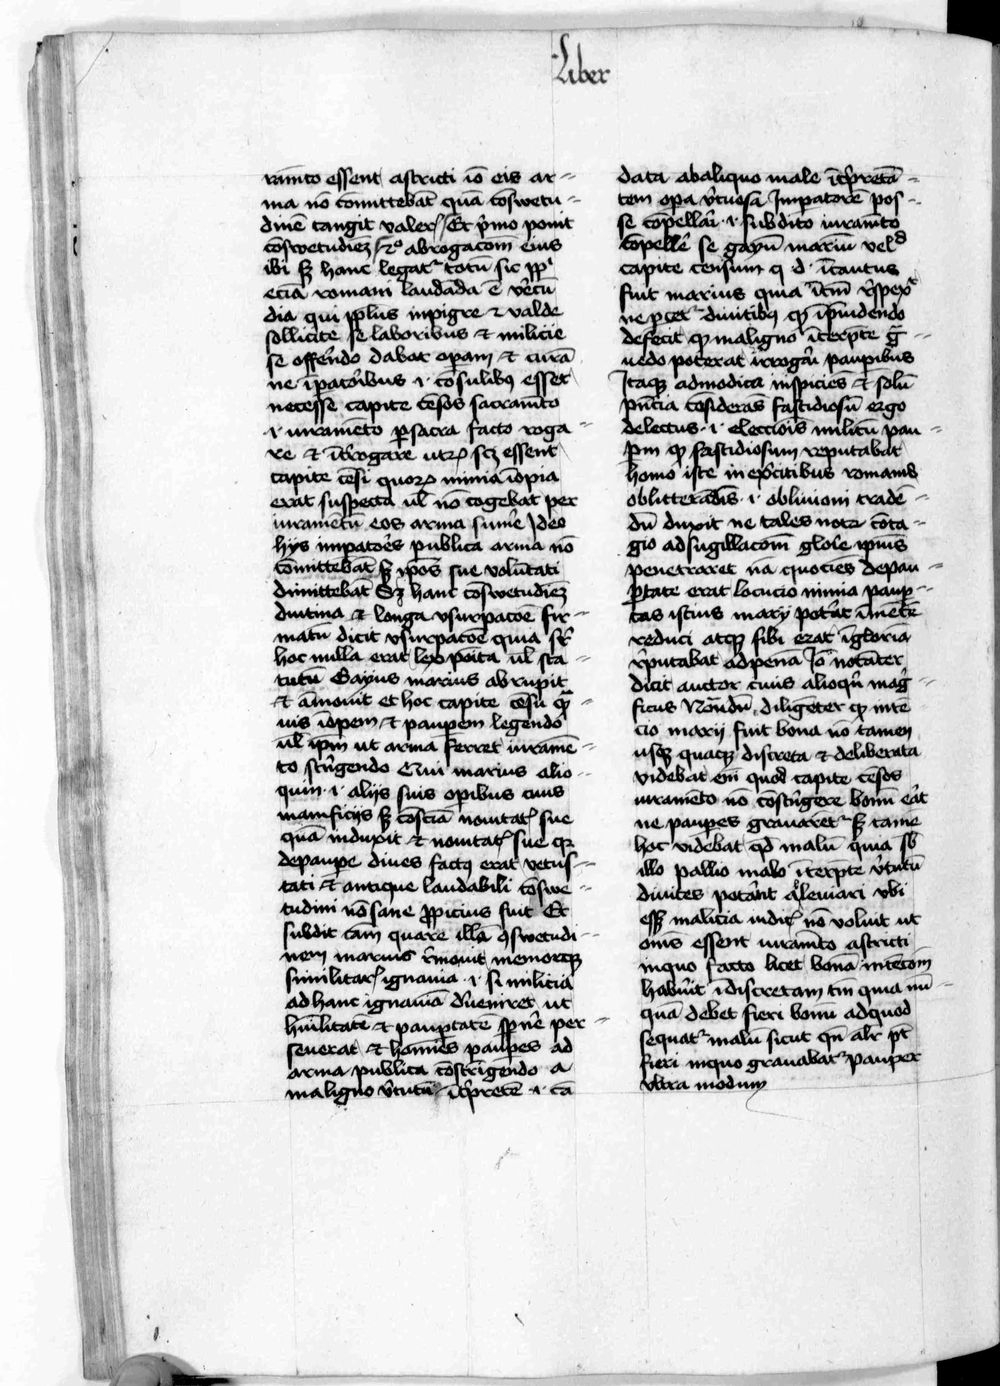 Liber
ramto essent astricti io eis ar-
ma no comittebat quā coswetu-
dinē tangit valer Et pmo ponit
coswetudiez 2o abrogacom eius
ibi sz hanc legatr totū sic pp
eciā romani laudāda ē vecū
dia qui pplus inpigre et valde
sollicite se laboribus et milicie
se offerndo dabat operam et curā
ne īpatoribus .i. cōsulibus esset
necesse capite cēsos sacramto
.i. iurameto per sacra facto roga-
re et itrogare utrū scz essent
capite cēsi quorum nimia īopia
erat suspecta ul no cogebat per
iuramētū eos arma sumere Ideo
hys impatores publica arma nō
comittebāt sz ipos sue volūtati
dimittebāt Sz hanc coswetudiez
diutina et longa vsurpacoe fir-
matū dicit vsurpacoe quia
hoc nulla erat lex posita ul sta-
tutū Gayus marius abrupit
et amouit et hoc capite cēsū
uis īopem et pauperem legendo
ul ipm ut arma ferret iuramē-
to strīgendo Qui marius alio-
quin .i. aliis suis operibus ciuis
manificus sz coscia nouitatis sue
quā induxit et nouitatis sue qz
depaupe diues factus erat vetus-
tati et antique laudabili coswe-
tudini nō sane propicius fuit Et
subdit cām quare illā coswetudi-
nem marius remouit memorque
si militaris ignauia .i. si milicia
ad hanc ignauiā deueniret ut
hūilitatē et paupertatē spnere per-
seuerat et homines pauperes ad
arma publica costringendo a
maligno virtutū īterpretē .i. cā
data ab aliquo male īterpretā-
tem opera virtuosa Imperatorē pos-
se copellari .i. subdito iuramto
copelle se gayū mariū vel
capite censum q d īcautus
fuit marius quia īm respex
ne pcet diuitibus qz ipuidendo
defecit qz maligno īterpte
uedo poterat irrogari pauperibus
Itaque ad modica inspicies et solū
pncia cosiderās fastidiosū ergo
delectus .i. eleccionis militū pau-
prm qz fastidiosum reputabat
homo iste in exercitibus romanis
oblitteradis .i. obliuioni tradē-
dū duxit ne tales nota cota-
gio ad sugillacom glorie ipius
penetraret nā quociens de pau-
ptate erat locucio nimia pauper-
tas istius marij poterat īmente
reduci atque sibi erat īgloria
reputabat ad penā Io notāter
dicit auctor ciuis alioqui mag-
ficus Notandū diligēter qz inte
cio marij fuit bona nō tamen
usque quaque discreta et deliberata
videbat em quod capite cēsos
iuramēto nō costringere bonū erat
ne pauperes grauarētur sz tamē
hoc videbat qd malū quia sb
illo pallio malo īterpte virtutū
diuites poterant alleuiari vbi
esset malicia iudicis nō voluit ut
omis essent iuramto astricti
in quo facto licet bonā intēcom
habuerit īdiscretam tm quia nū-
quā debet fieri bonū ad quod
sequatr malū sicut qn alr pt
fieri in quo grauabatr pauper
vltra modum